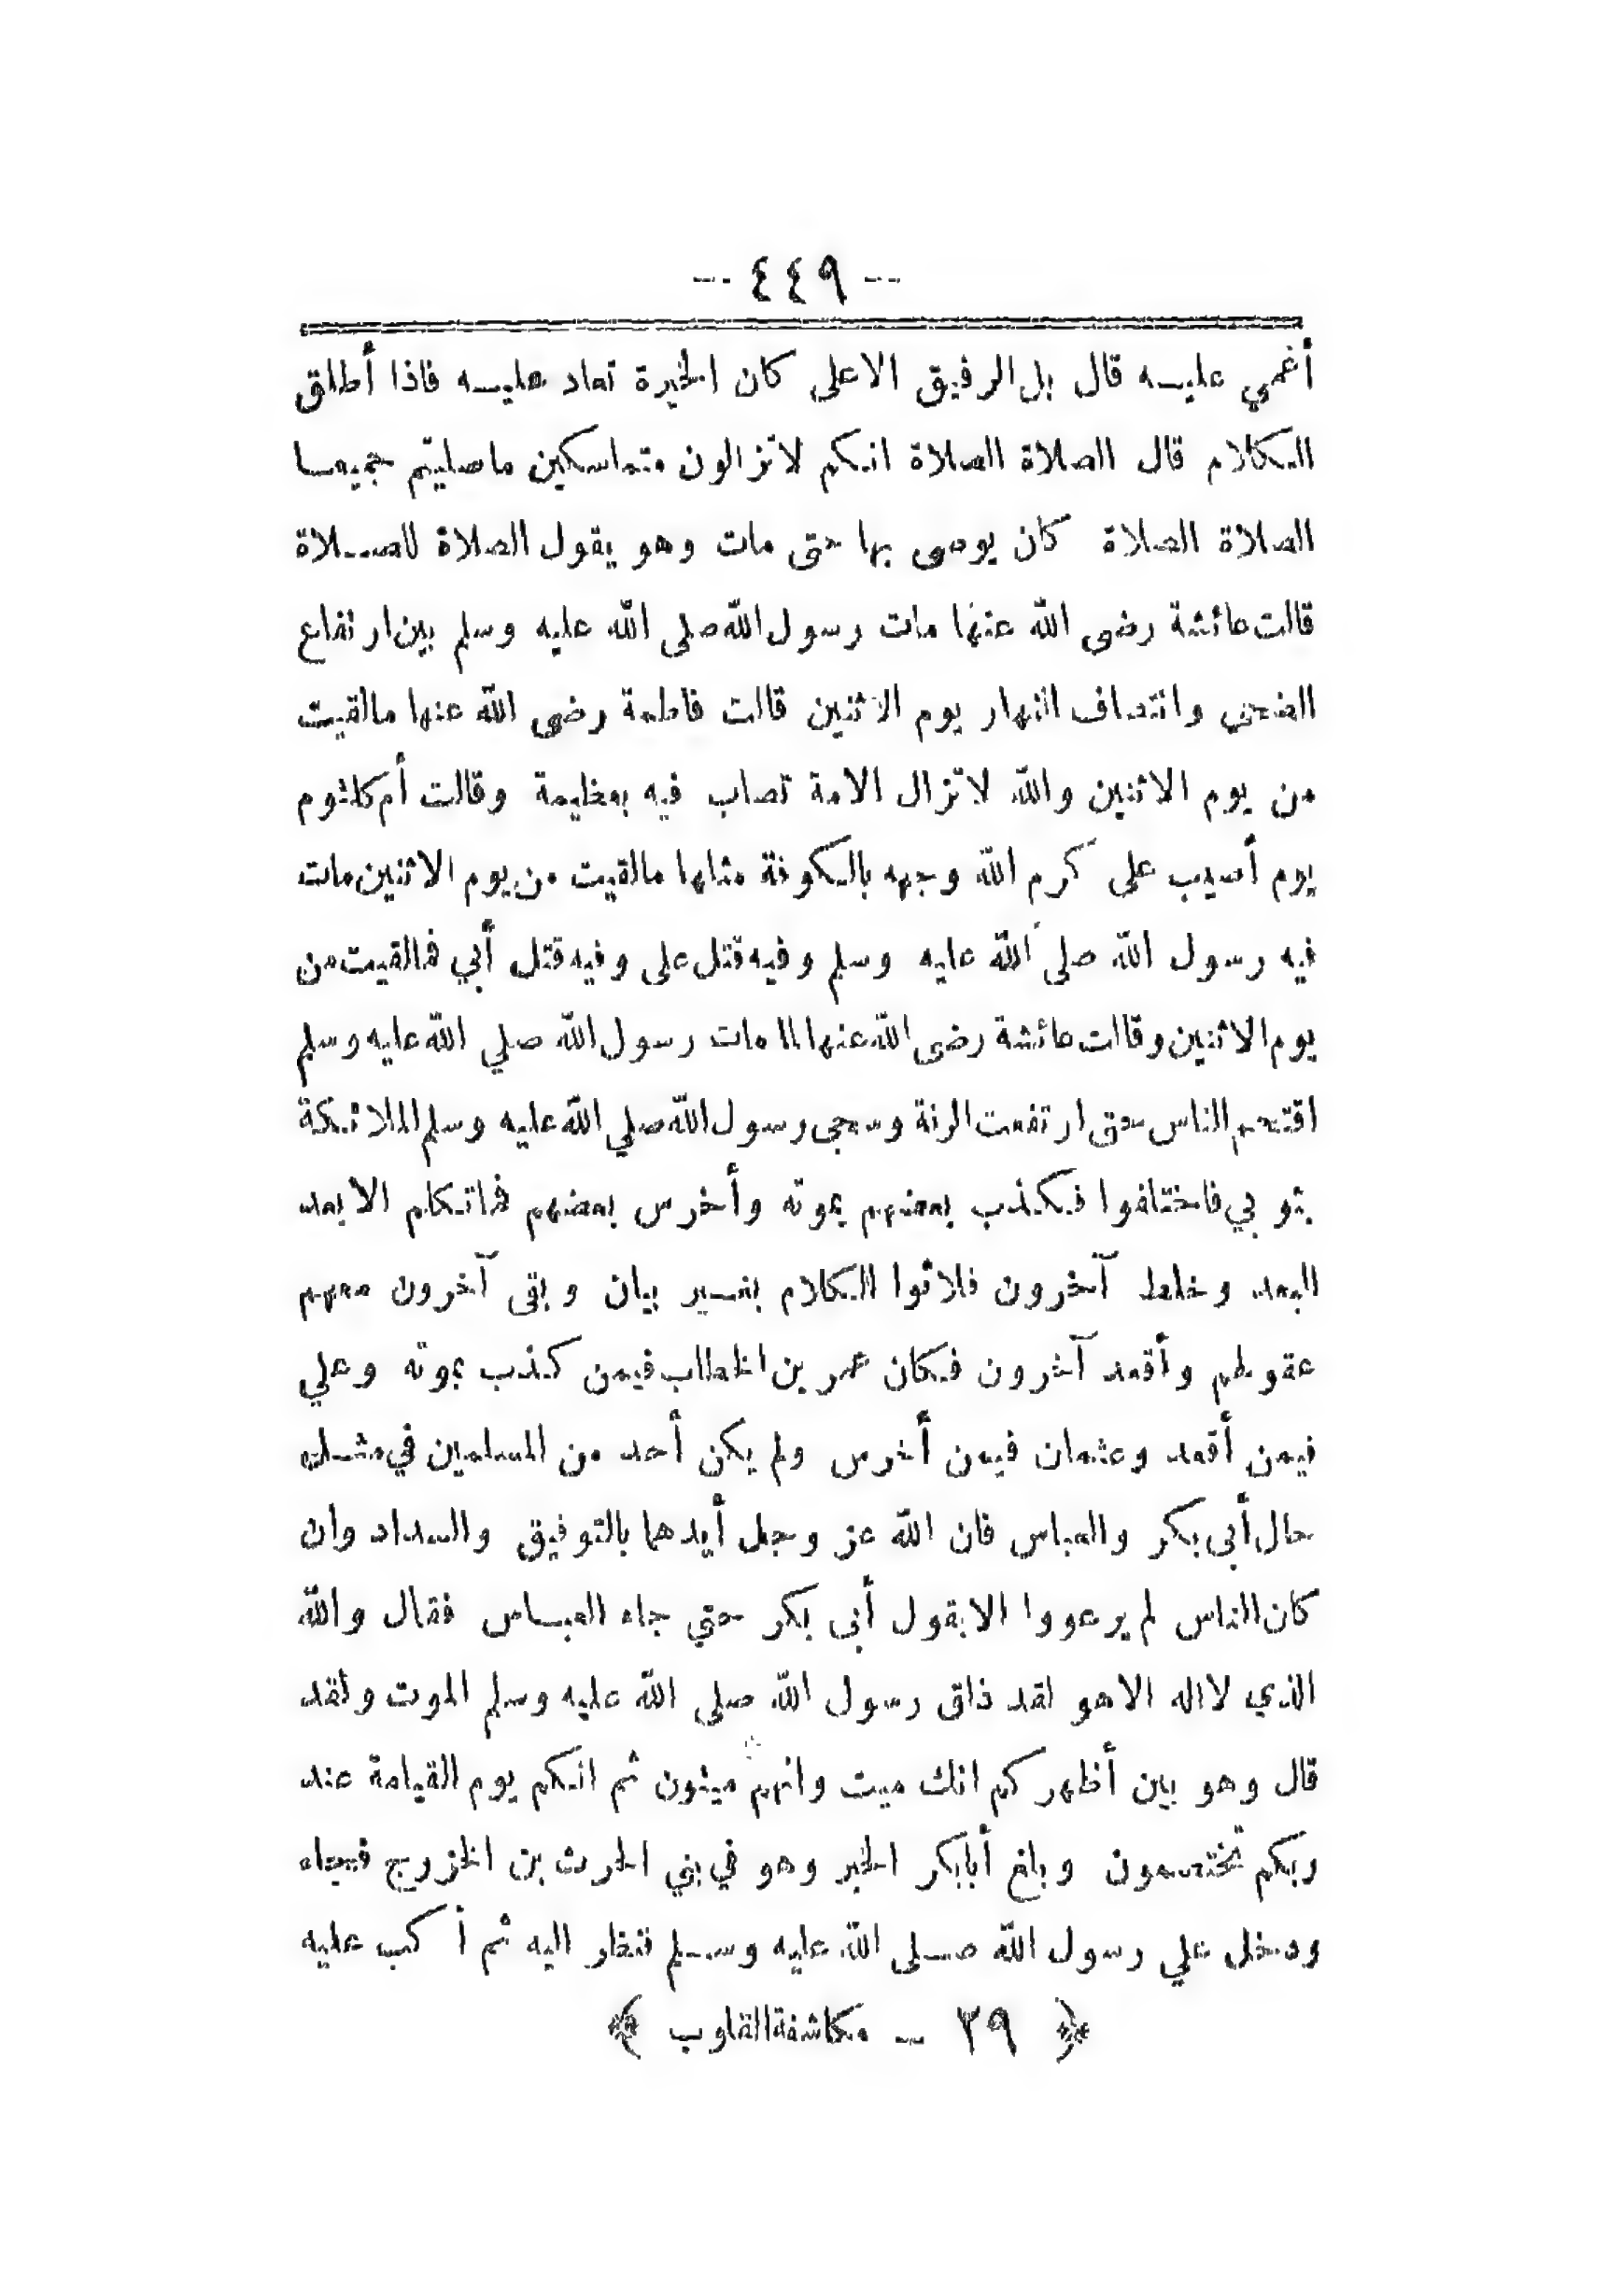 -- ٤٤٩ --
أغمي عليه قال بل الرفيق الاعلى كان الخيرة تعاد عليه فاذا أطلق
الكلام قال الصلاة الصلاة انكم لا تزالون متماسكين ما صليتم جميعا
الصلاة الصلاة كان يوصى بها حتى مات وهو يقول الصلاة الصلاة
قالت عائشة رضى الله عنها مات رسول الله صلى الله عليه وسلم بين ارتفاع
الضحى وانتصاف النهار يوم الاثنين قالت فاطمة رضى الله عنها مالقيت
من يوم الاثنين والله لا تزال الامة تصاب فيه بعظيمة وقالت أم كلثوم
يوم أصيب على كرم الله وجهه بالكوفة مثلها مالقيت من يوم الاثنين مات
فيه رسول الله صلى الله عليه وسلم وفيه قتل على وفيه قتل أبي فمالقيت من
يوم الاثنين وقالت عائشة رضى الله عنها لما مات رسول الله صلي الله عليه وسلم
اقتحم الناس حتى ارتفعت الرنة وسجى رسول الله صلي الله عليه وسلم الملائكة
بثوبي فاختلفوا فكذب بعضهم بموته وأخرس بعضهم فماتكلم الا بعد
البعد وخلط آخرون فلاثوا الكلام بغير بيان وبقى آخرون معهم
عقولهم وأقعد آخرون فكان عمر بن الخطاب فيمن كذب بموته وعلي
فيمن أقعد وعثمان فيمن أخرس ولم يكن أحد من المسلمين في مثل
حال أبى بكر والعباس فان الله عز وجل أيدهما بالتوفيق والسداد وان
كان الناس لم يرعووا الا بقول أبى بكر حتي جاء العباس فقال والله
الذي لا اله الا هو لقد ذاق رسول الله صلى الله عليه وسلم الموت ولقد
قال وهو بين أظهركم انك ميت وانهم ميتون ثم انكم يوم القيامة عند
ربكم تختصمون وبلغ أبابكر الخبر وهو في بني الحرث بن الخزرج فجاء
ودخل علي رسول الله صلى الله عليه وسلم فنظر اليه ثم أكب عليه
﴿ ٣٩ — مكاشفة القلوب ﴾